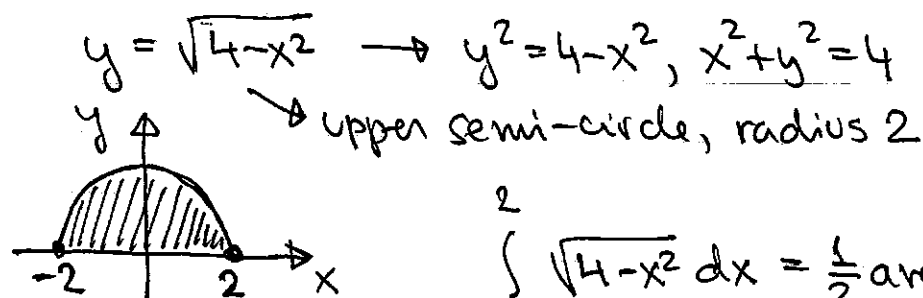 y = √(4-x²) → y² = 4-x², x²+y² = 4
y ↘ upper semi-circle, radius 2
2
∫ √(4-x²) dx = 1/2
-2 2 x